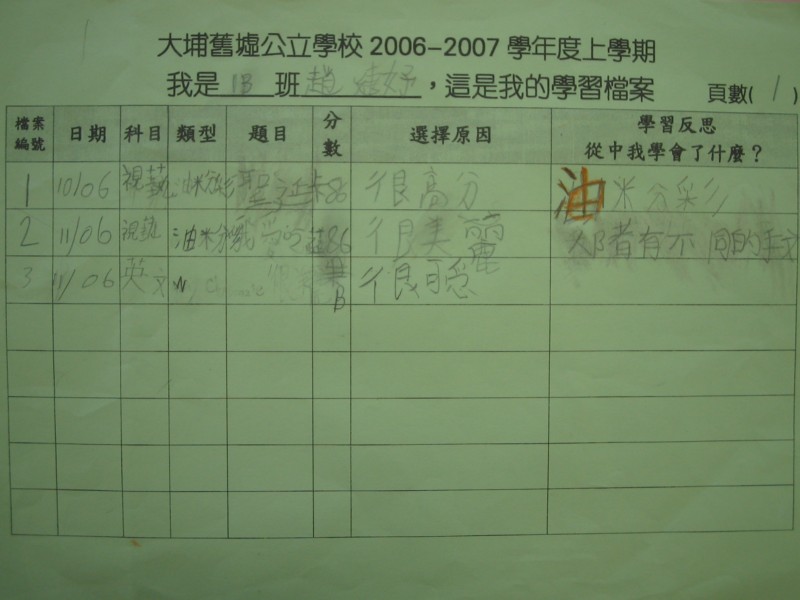 大埔舊墟公立學校 2006-2007 學年度上學期
我是 1B 班 趙 ，這是我的學習檔案 頁數( 1 )
檔案編號 日期 科目 類型 題目 分數 選擇原因 學習反思 從中我學會了什麼？
1 10/06 視藝 聖誕卡 86 很高分 油米分彩
2 11/06 視藝 油米分 86 很美麗 者有不同的
3 11/06 英文 B 很